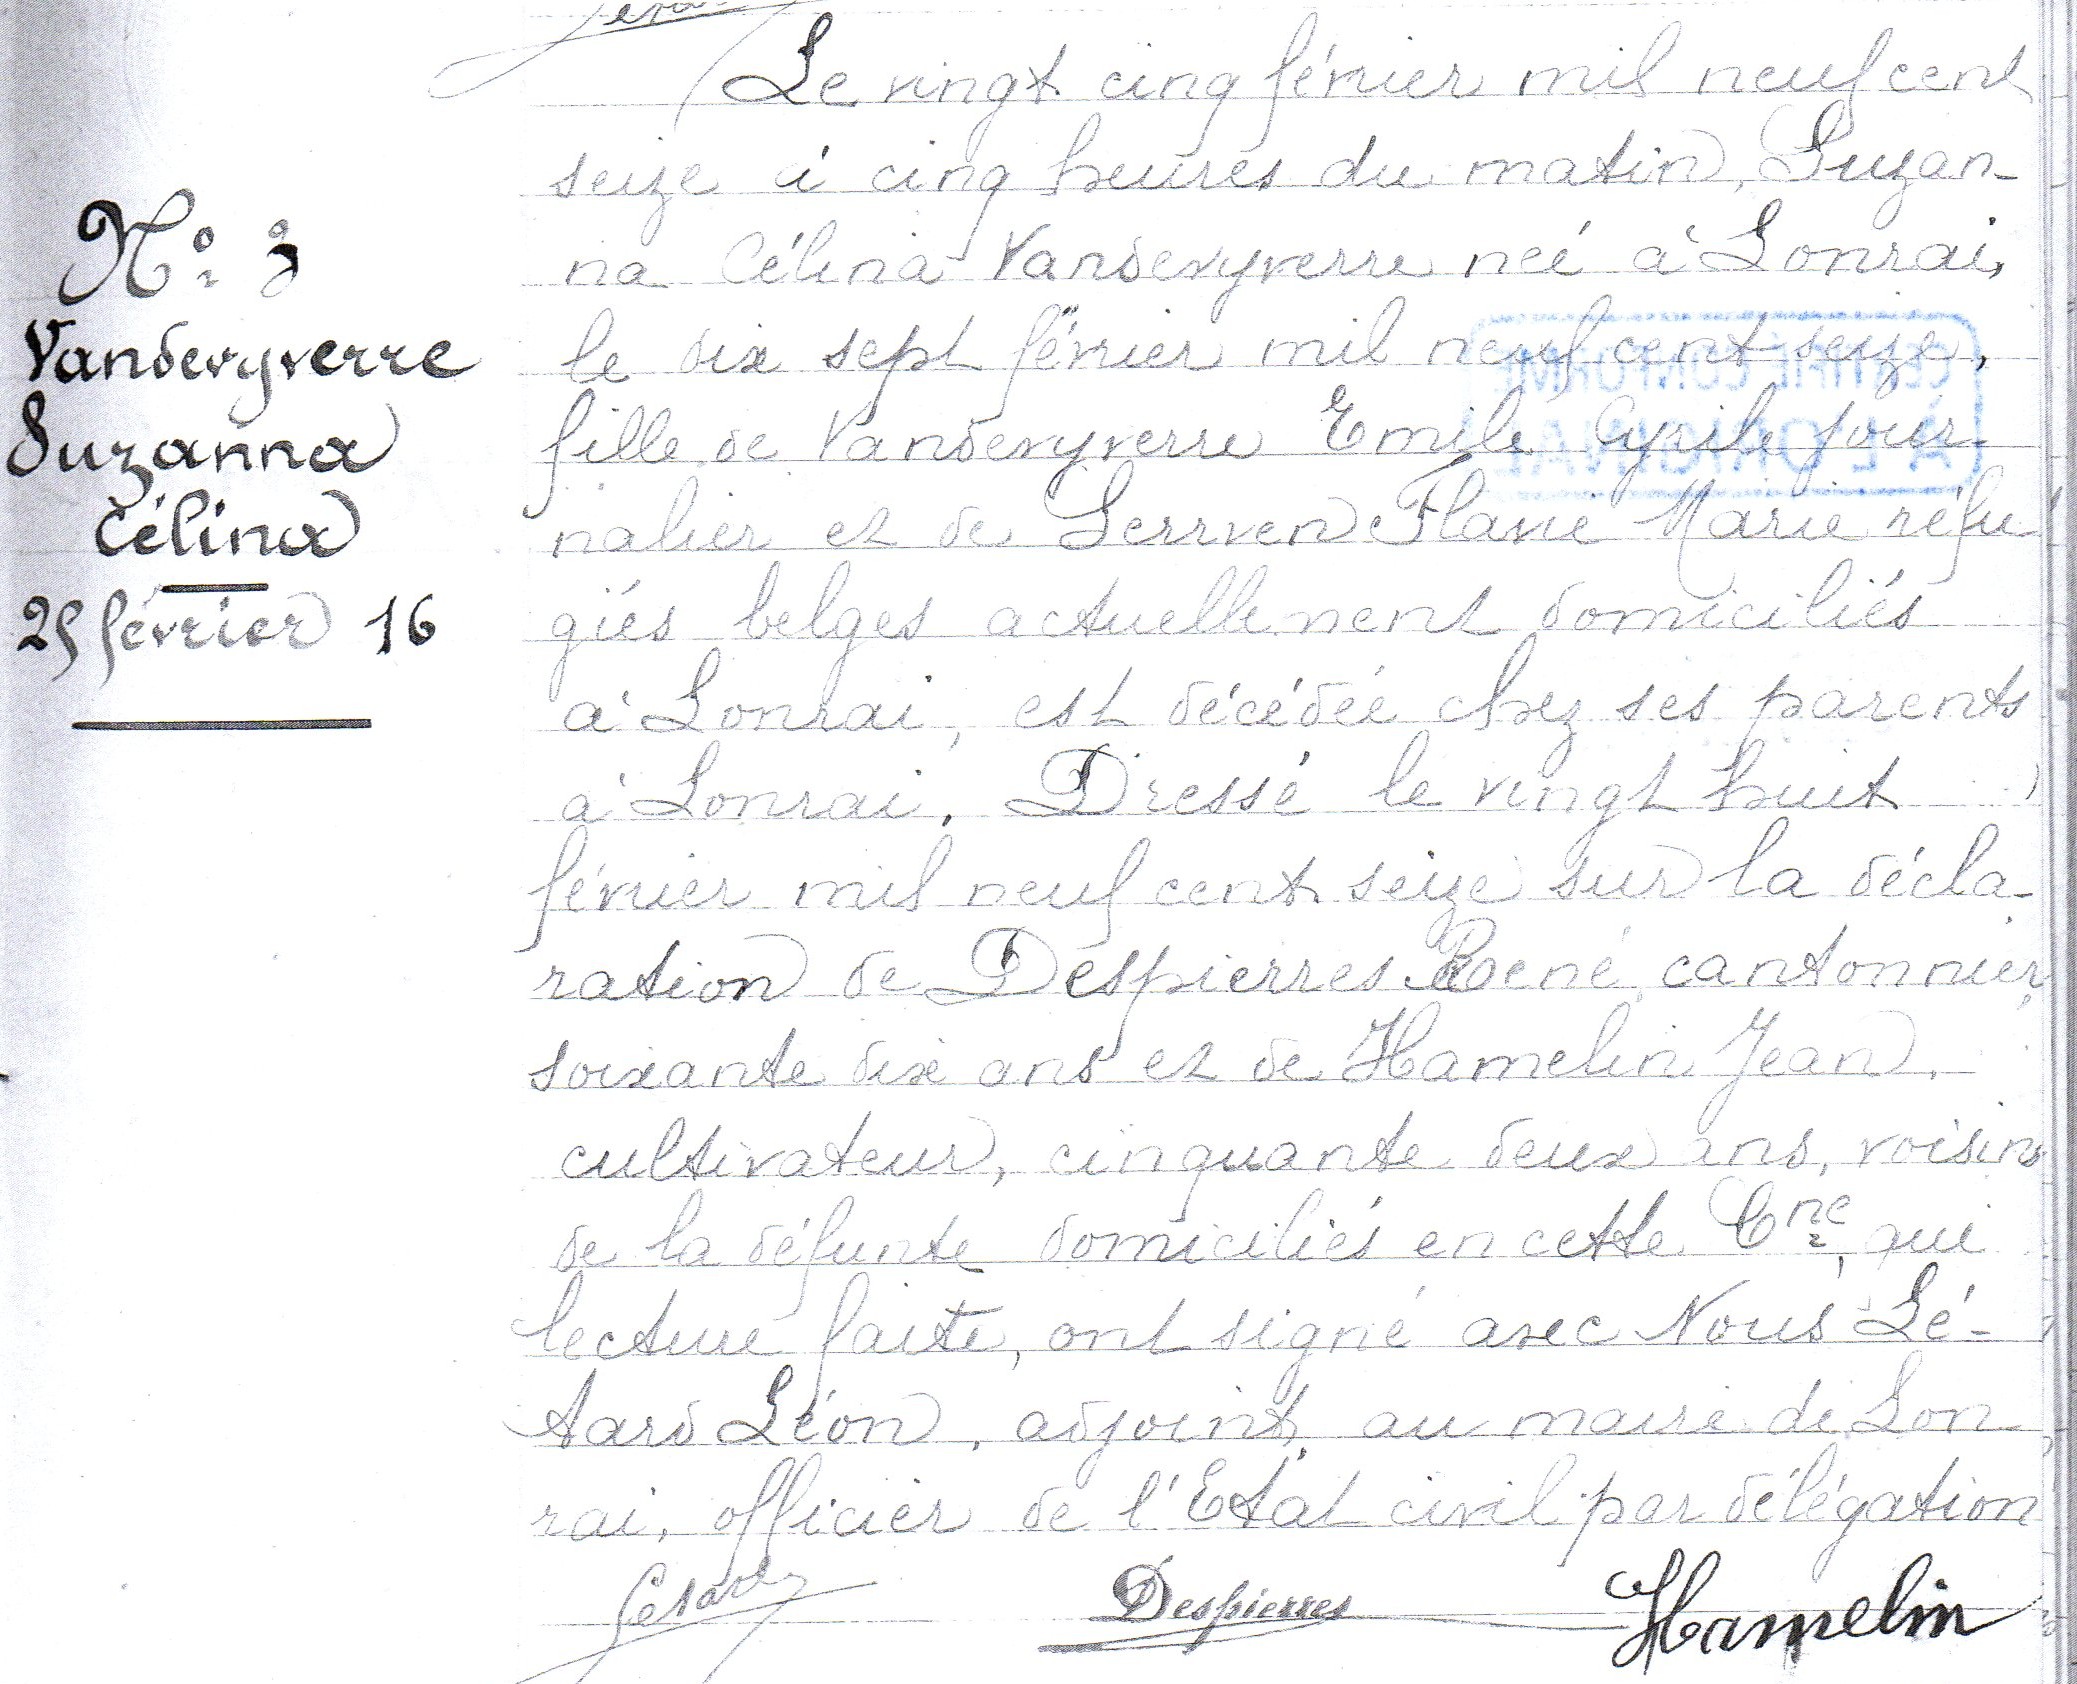 N° 3
Vandevyverre
Suzanna
Célina
25 février 16
Le vingt cinq février mil neuf cent
seize à cinq heures du matin, Suzan-
na Célina Vandevyverre née à Lonrai,
le dix sept février mil neuf cent seize,
fille de Vandevyverre Emile Cyrile jour
nalier et de Serrven Flavie Marie réfu
giés belges actuellement domiciliés
à Lonrai, est décédée chez ses parents
à Lonrai. Dressé le vingt huit
février mil neuf cent seize sur la décla-
ration de Despierres René, cantonnier,
soixante dix ans et de Hamelin Jean,
cultivateur, cinquante deux ans, voisins
de la défunte domiciliés en cette Cne, qui
lecture faite, ont signé avec Nous Lé-
tard Léon, adjoint au maire de Lon
rai, officier de l'Etat civil par délégation
Despierres
Hamelin
CERTIFIÉ CONFORME
À L'ORIGINAL